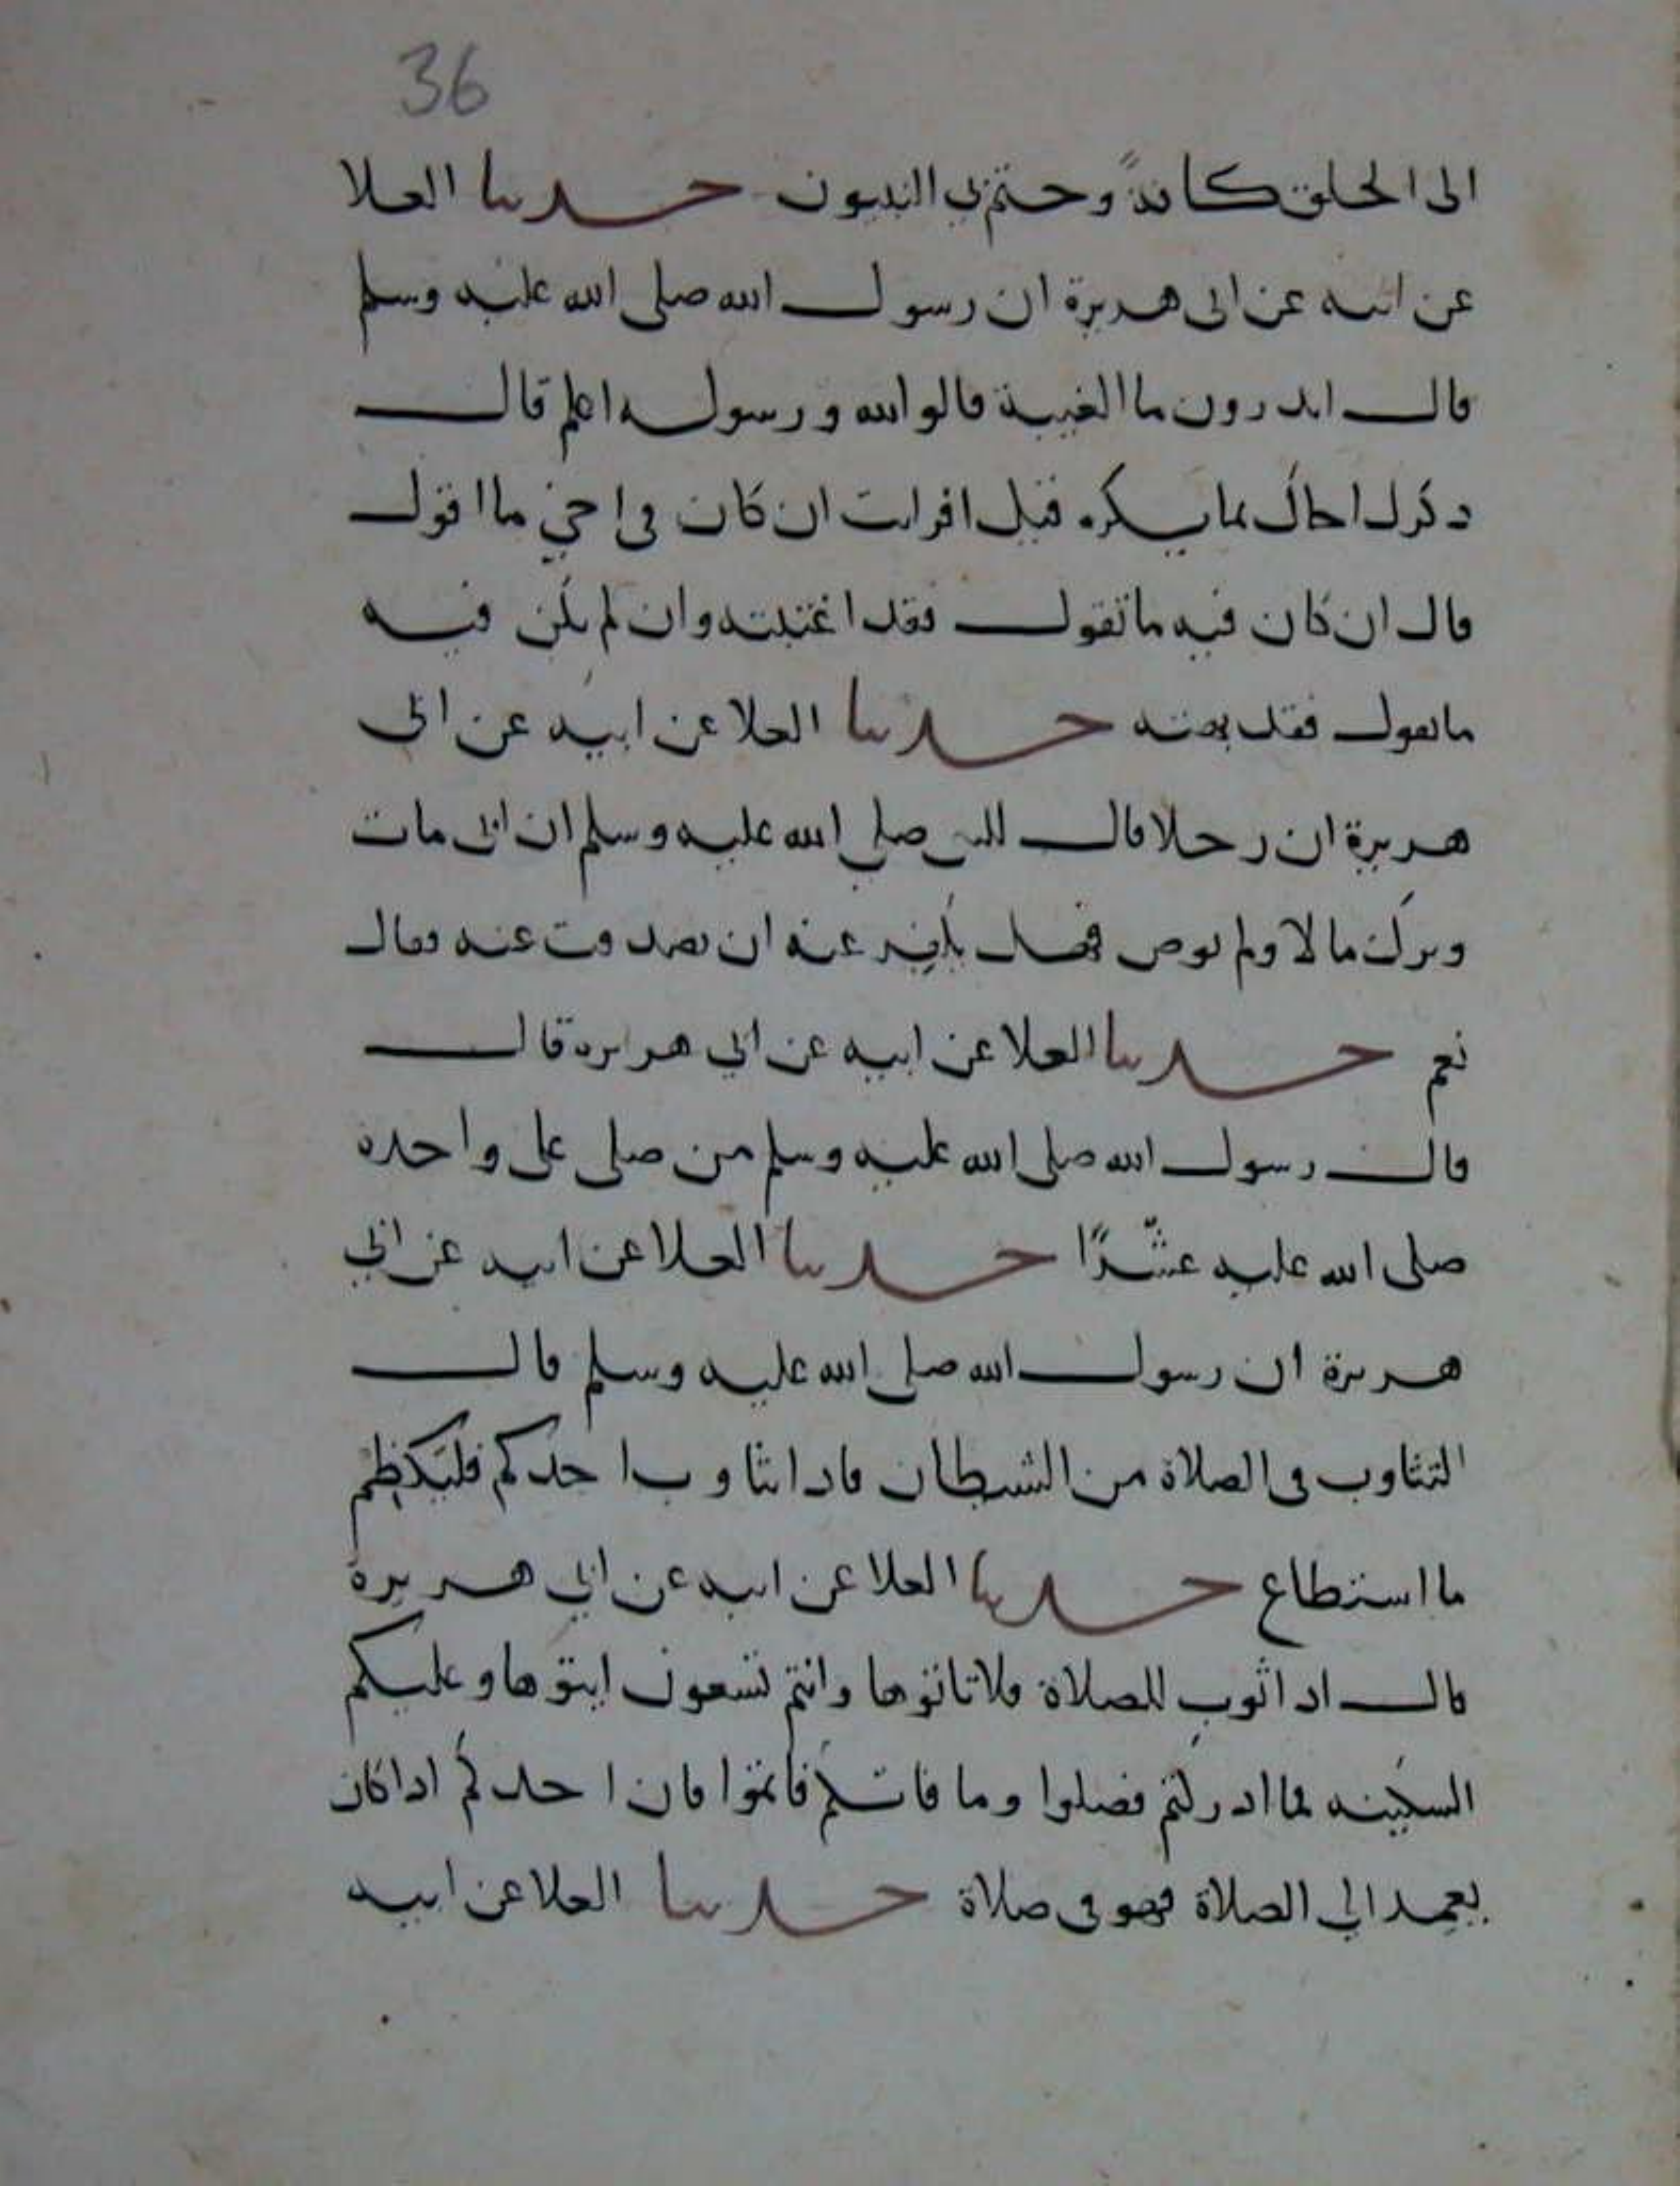 36
الى الخلق كافةً وختم بي النبيون حدثنا العلا
عن ابيه عن ابى هريرة ان رسول الله صلى الله عليه وسلم
قال اتدرون ما الغيبة قالوا الله ورسوله اعلم قال
ذكرك اخاك بما يكره قيل افرايت ان كان فى اخي ما اقول
قال ان كان فيه ما تقول فقد اغتبته وان لم يكن فيه
ما تقول فقد بهته حدثنا العلا عن ابيه عن ابى
هريرة ان رجلا قال للنبى صلى الله عليه وسلم ان ابى مات
وترك مالا ولم يوص فهل يكفر عنه ان تصدقت عنه فقال
نعم حدثنا العلا عن ابيه عن ابي هريره قال
قال رسول الله صلى الله عليه وسلم من صلى على واحده
صلى الله عليه عشرًا حدثنا العلا عن ابيه عن ابي
هريرة ان رسول الله صلى الله عليه وسلم قال
التثاوب فى الصلاة من الشيطان فاذا تثاوب احدكم فليكظم
ما استطاع حدثنا العلا عن ابيه عن ابي هريرة
قال اذا ثوب للصلاة فلا تاتوها وانتم تسعون ايتوها وعليكم
السكينه فما ادركتم فصلوا وما فاتكم فاتموا فان احدكم اذا كان
يعمد الي الصلاة فهو فى صلاة حدثنا العلا عن ابيه